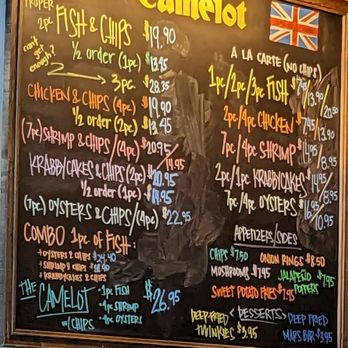 Camelot
PROPER
2pc FISH & CHIPS $19.90
1/2 order (1pc) $13.45
can't get enough? 3pc. $28.35
CHICKEN & CHIPS (4pc) $19.90
1/2 order (2pc) $13.45
(7pc) SHRIMP & CHIPS /(4pc) $20.95/14.95
KRABBYCAKES & CHIPS (2pc) $20.95
1/2 order (1pc) $14.95
(7pc) OYSTERS & CHIPS/(4pc) $22.95
COMBO 1pc OF FISH:
+ OYSTERS & CHIPS $24.40
+ SHRIMP & CHIPS
+ KRABBYCAKES & CHIPS
THE CAMELOT
w/ CHIPS
-1pc FISH
-4pc SHRIMP
-4pc OYSTERS
$26.95
À LA CARTE (NO CHIPS)
1pc/2pc/3pc FISH
2pc/4pc CHICKEN
7pc/4pc SHRIMP
2pc/1pc KRABBYCAKES
7pc/4pc OYSTERS
APPETIZERS/SIDES
CHIPS $7.50 ONION RINGS $8.50
MUSHROOMS $7.95 JALAPEÑO POPPERS $7.95
SWEET POTATO FRIES $7.95
DESSERTS
DEEP FRIED TWINKIES $3.95
DEEP FRIED MARS BAR $3.95